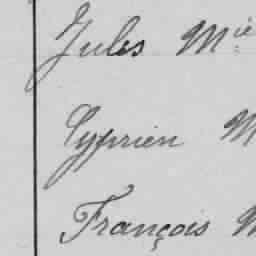 Jules Mie
Cyprien M
François M